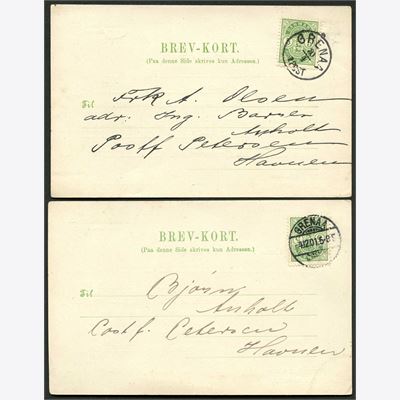 BREV-KORT.
(Paa denne Side skrives kun Adressen.)
GRENAA
POST
Til Frk A. Olsen
adr. Ing. Barser
Anholt
Postf Petersen
Havnen
BREV-KORT.
(Paa denne Side skrives kun Adressen.)
GRENAA
Til Bjørn
Anholt
Postf. Petersen
Havnen